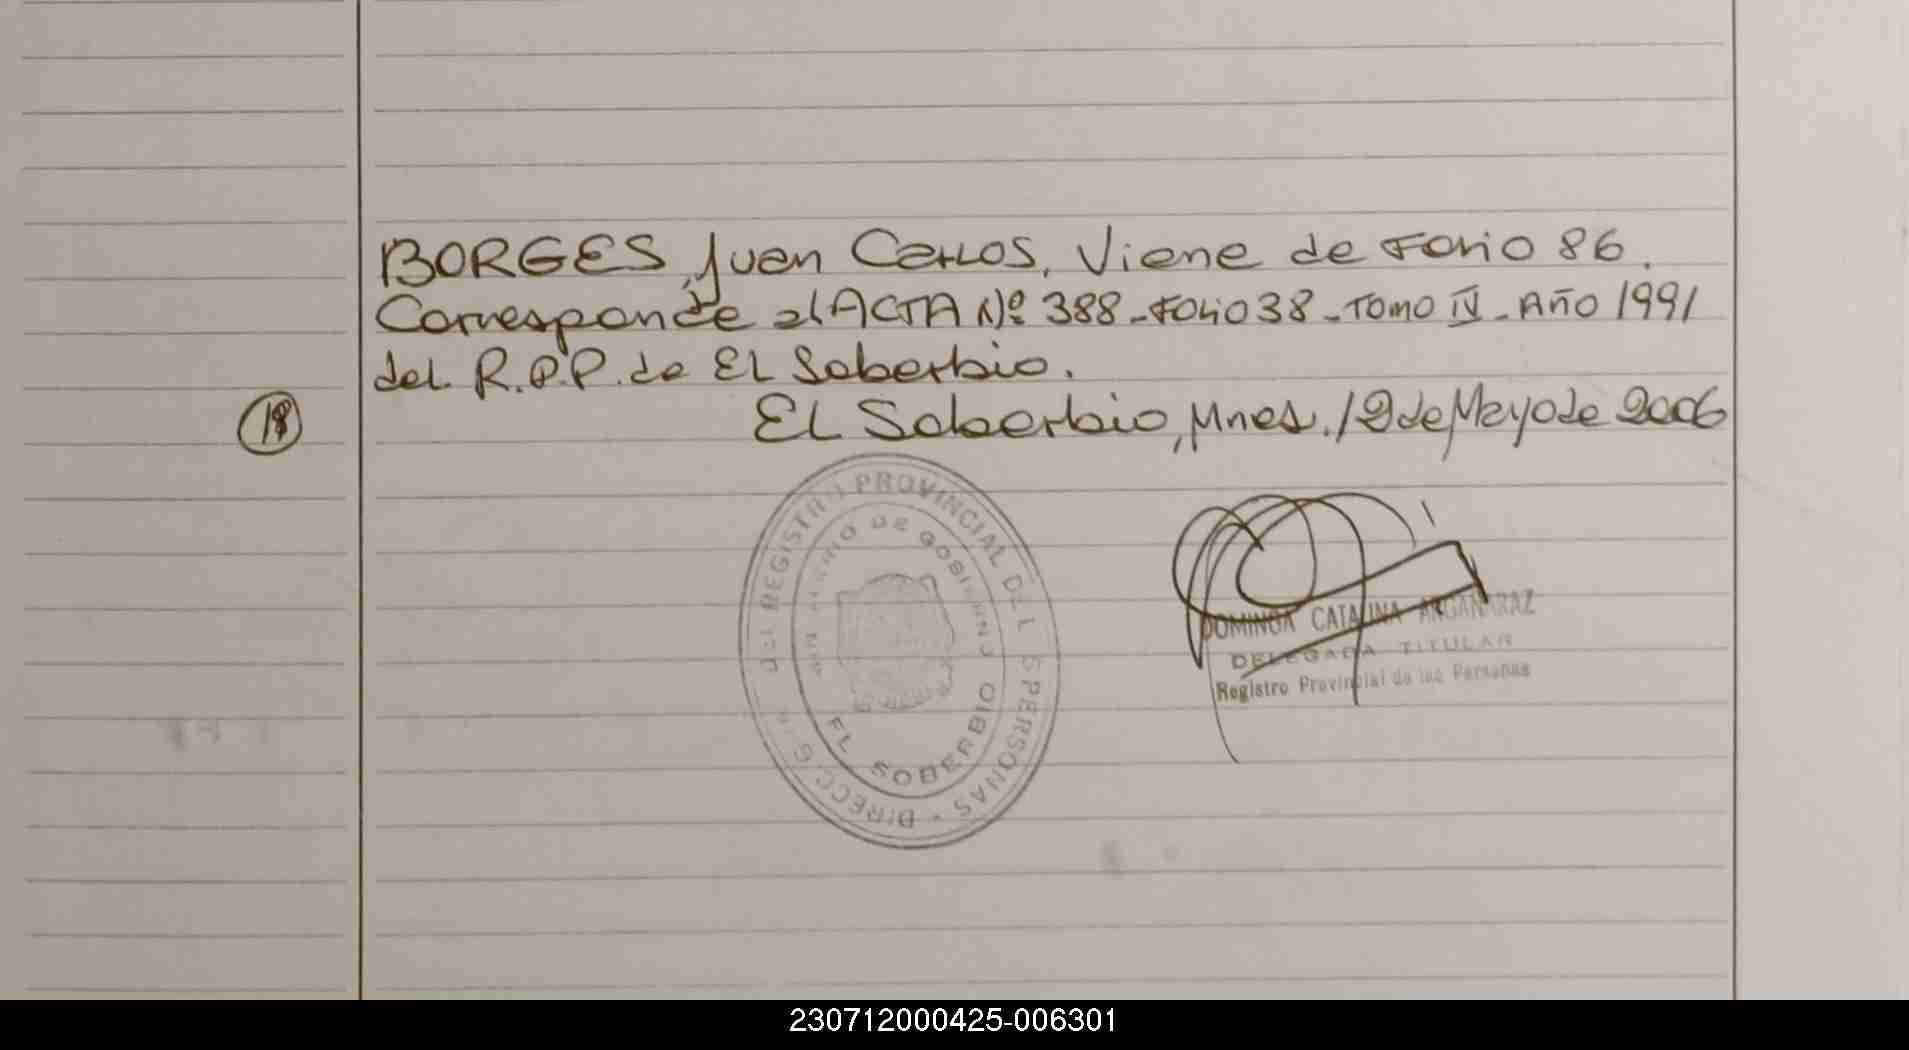 BORGES, Juan Carlos, Viene de Folio 86.
Corresponde al ACTA Nº 388 - Folio 38 - Tomo IV - Año 1991
del R.P.P. de El Soberbio.
18
El Soberbio, Mnes. 12 de Mayo de 2006
DEL REGISTRO PROVINCIAL DE LAS PERSONAS - DIRECC. G.
MINISTERIO DE GOBIERNO
EL SOBERBIO
DOMINGA CATALINA ARGAÑARAZ
DELEGADA TITULAR
Registro Provincial de las Personas
230712000425-006301